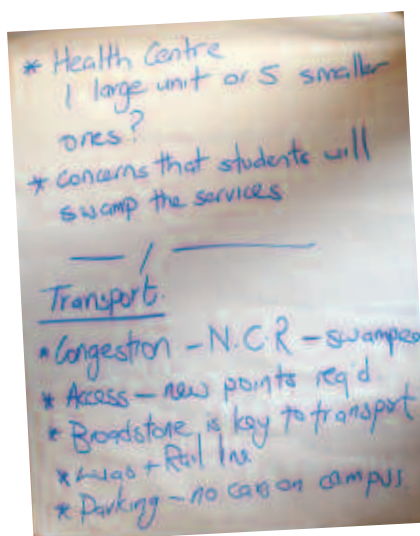 * Health Centre
1 large unit or 5 smaller
ones?
* concerns that students will
swamp the services
— / ———
Transport.
* Congestion - N.C.R - swamped
* Access - new points req'd
* Broadstone is key to transport
* Luas + Rail line
* Parking - no cars on campus.